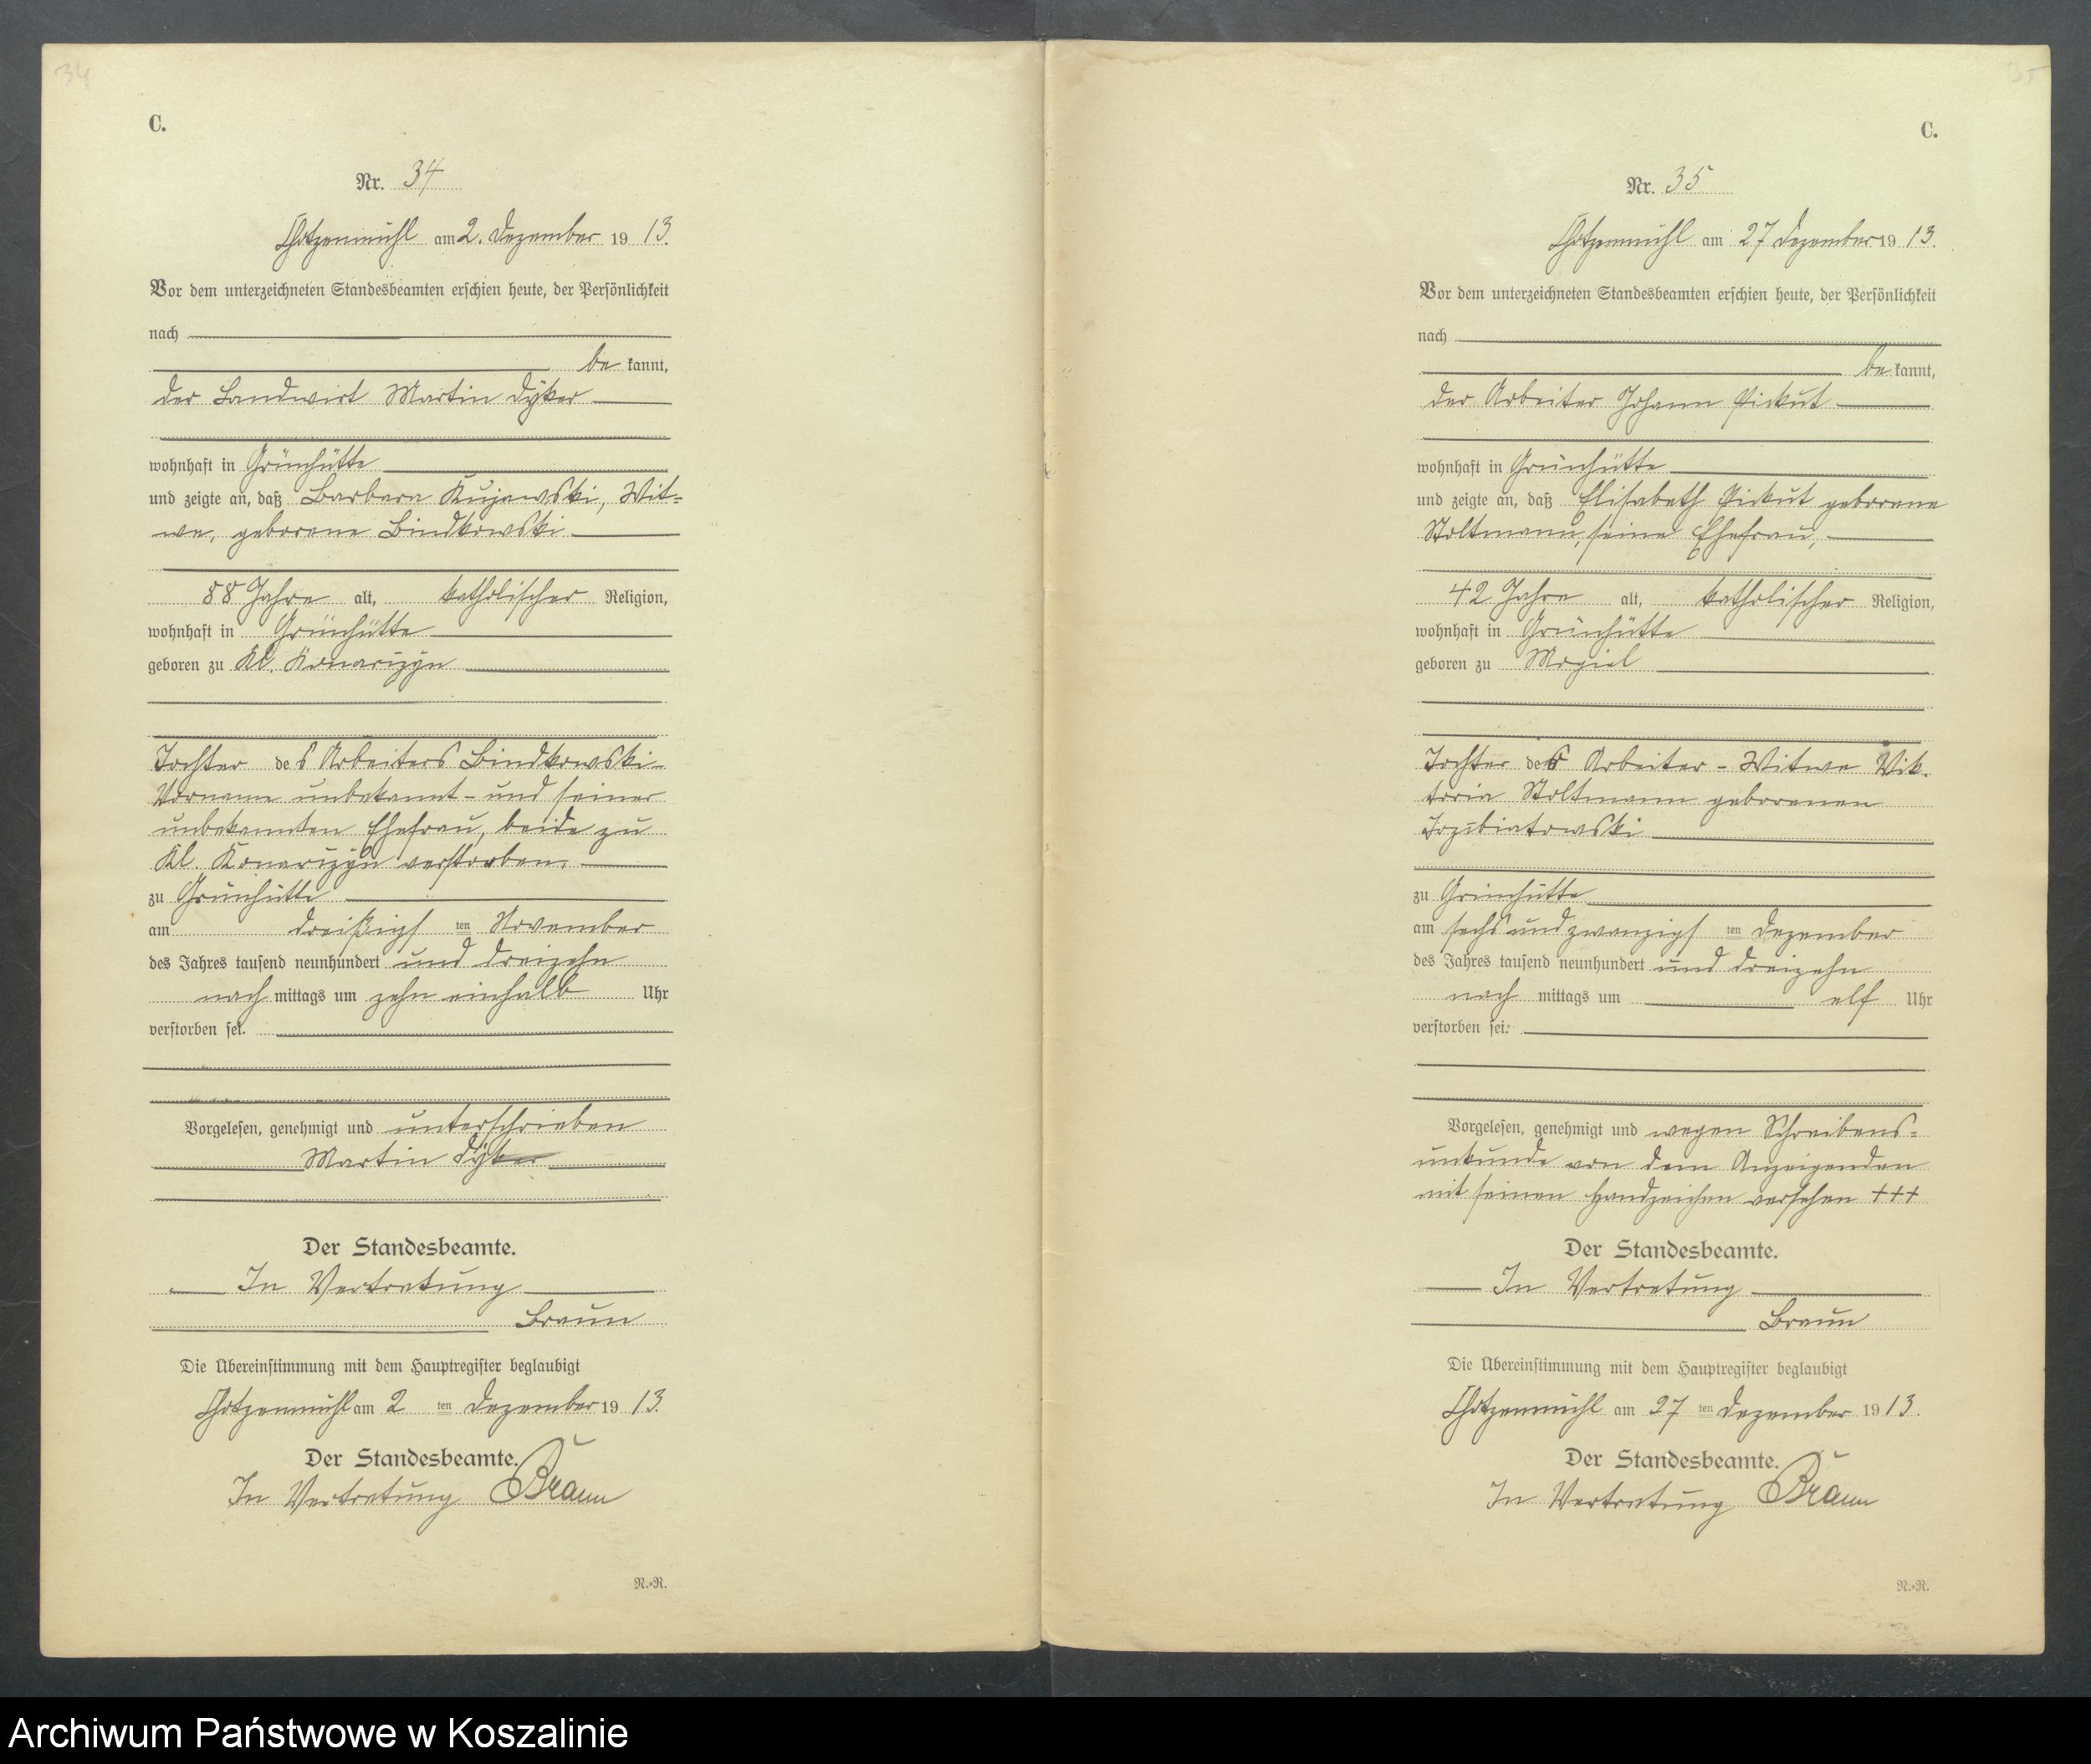 34
C.
Nr. 34
Chotzenmühl am 2. Dezember 19 13.
Vor dem unterzeichneten Standesbeamten erschien heute, der Persönlichkeit
nach
be kannt,
der Landwirt Martin Dyker
wohnhaft in Grünhütte
und zeigte an, daß Barbara Kujawski, Wit-
we, geborene Bindkowski
88 Jahre alt, katholischer Religion,
wohnhaft in Grünhütte
geboren zu Kl. Konarczyn
Tochter des Arbeiters Bindkowski -
Vorname unbekannt - und seiner
unbekannten Ehefrau, beide zu
Kl. Konarczyn verstorben.
zu Grünhütte
am dreißigs ten November
des Jahres tausend neunhundert und dreizehn
nach mittags um zehn einhalb Uhr
verstorben sei.
Vorgelesen, genehmigt und unterschrieben
Martin Dyker
Der Standesbeamte.
In Vertretung
Braun
Die Übereinstimmung mit dem Hauptregister beglaubigt
Chotzenmühl am 2 ten Dezember 19 13.
Der Standesbeamte.
In Vertretung Braun
N.-R.
35
C.
Nr. 35
Chotzenmühl am 27 Dezember 19 13.
Vor dem unterzeichneten Standesbeamten erschien heute, der Persönlichkeit
nach
be kannt,
der Arbeiter Johann Pickut
wohnhaft in Grünhütte
und zeigte an, daß Elisabeth Pickut geborene
Stoltmann, seine Ehefrau,
42 Jahre alt, katholischer Religion,
wohnhaft in Grünhütte
geboren zu Mogiel
Tochter der Arbeiter - Witwe Wik-
toria Stoltmann geborenen
zu Grünhütte
am sechsundzwanzigs ten Dezember
des Jahres tausend neunhundert und dreizehn
nach mittags um elf Uhr
verstorben sei.
Vorgelesen, genehmigt und wegen Schreibens-
unkunde von dem Anzeigenden
mit seinen Handzeichen versehen +++
Der Standesbeamte.
In Vertretung
Braun
Die Übereinstimmung mit dem Hauptregister beglaubigt
Chotzenmühl am 27 ten Dezember 19 13.
Der Standesbeamte.
In Vertretung Braun
N.-R.
Archiwum Państwowe w Koszalinie